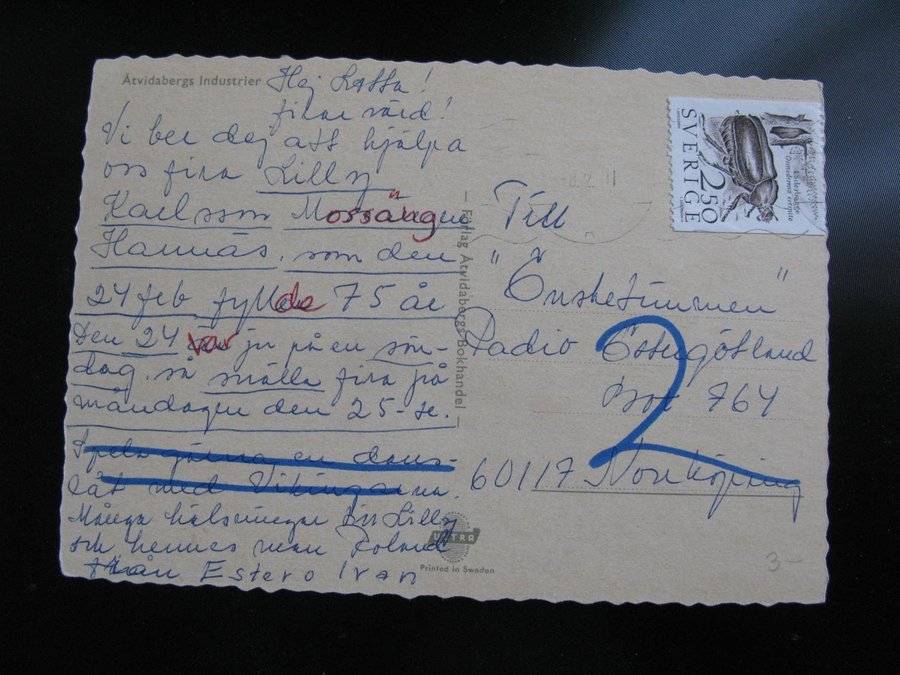 Åtvidabergs Industrier
Hej Lotta!
firar värd!
Vi ber dej att hjälpa
oss fira Lilly
Karlsson Mossängen
Hannäs, som den
24 feb fyllde 75 år
Den 24 var ju på en sön-
dag, så snälla fira på
måndagen den 25-te.
Spela gärna en dans-
låt med Vikingarna.
Många hälsningar till Lilly
och hennes man Roland
från Ester o Ivan
Förlag Åtvidabergs Bokhandel
ULTRA
Printed in Sweden
SVERIGE
2.50
Till
"Önsketimmen"
Radio Östergötland
Box 764
60117 Norrköping
2
3-